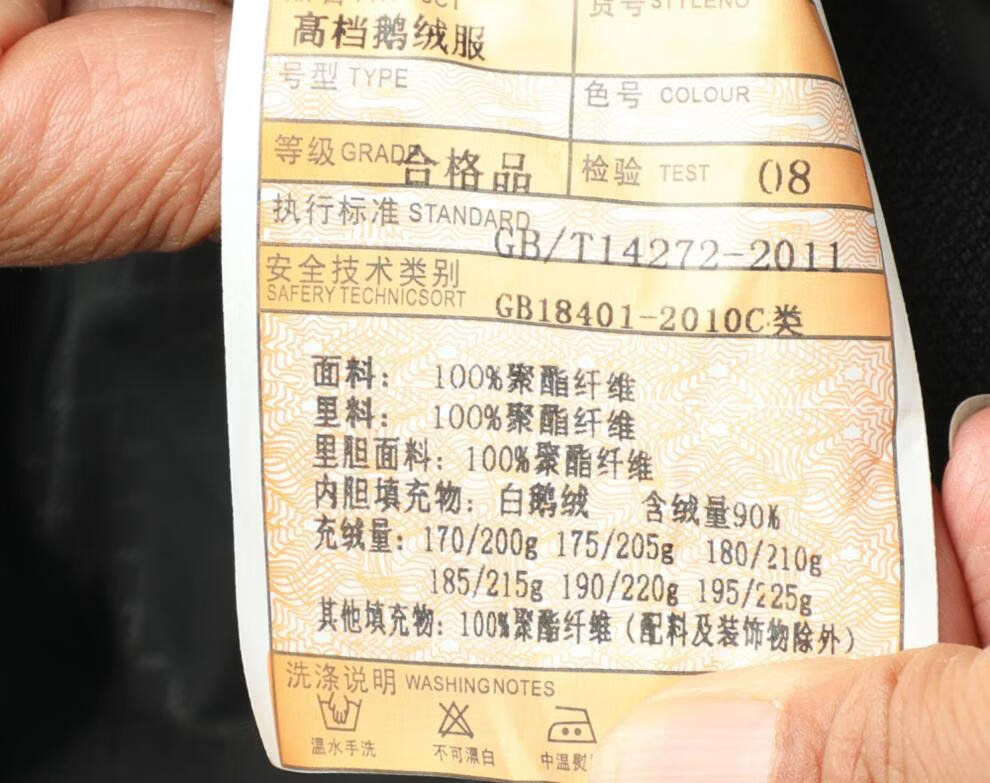 货号STYLENO
高档鹅绒服
号型 TYPE
色号 COLOUR
等级GRADE 合格品
检验 TEST 08
执行标准 STANDARD GB/T14272-2011
安全技术类别
SAFERY TECHNICSORT GB18401-2010C类
面料： 100%聚酯纤维
里料： 100%聚酯纤维
里胆面料：100%聚酯纤维
内胆填充物：白鹅绒 含绒量90%
充绒量：170/200g 175/205g 180/210g
185/215g 190/220g 195/225g
其他填充物：100%聚酯纤维（配料及装饰物除外）
洗涤说明 WASHINGNOTES
温水手洗 不可漂白 中温熨